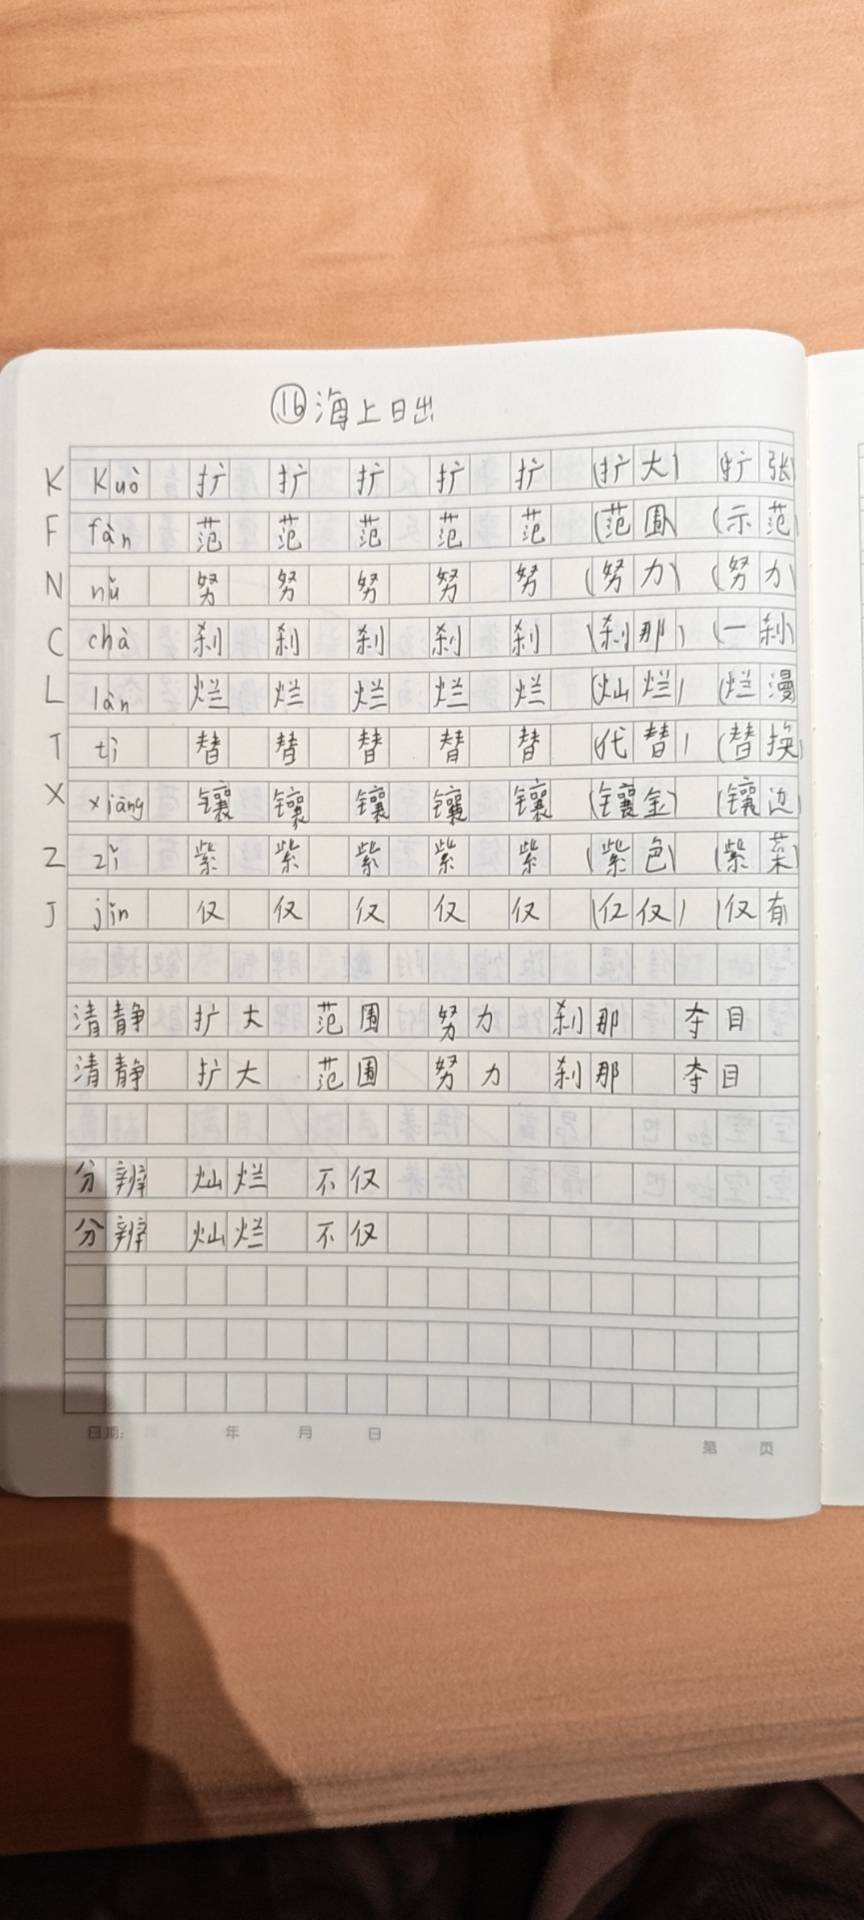 ⑯海上日出
K Kuò 扩 扩 扩 扩 扩 (扩大) (扩张)
F fàn 范 范 范 范 范 (范围) (示范)
N nǔ 努 努 努 努 努 (努力) (努力)
C chà 刹 刹 刹 刹 刹 (刹那) (一刹)
L làn 烂 烂 烂 烂 烂 (灿烂) (烂漫
T tì 替 替 替 替 替 (代替) (替换)
X xiāng 镶 镶 镶 镶 镶 (镶金) (镶边)
Z zǐ 紫 紫 紫 紫 紫 (紫色) (紫菜)
J jǐn 仅 仅 仅 仅 仅 (仅仅) (仅有
清静 扩大 范围 努力 刹那 夺目
清静 扩大 范围 努力 刹那 夺目
分辨 灿烂 不仅
分辨 灿烂 不仅
日期: 年 月 日 第 页